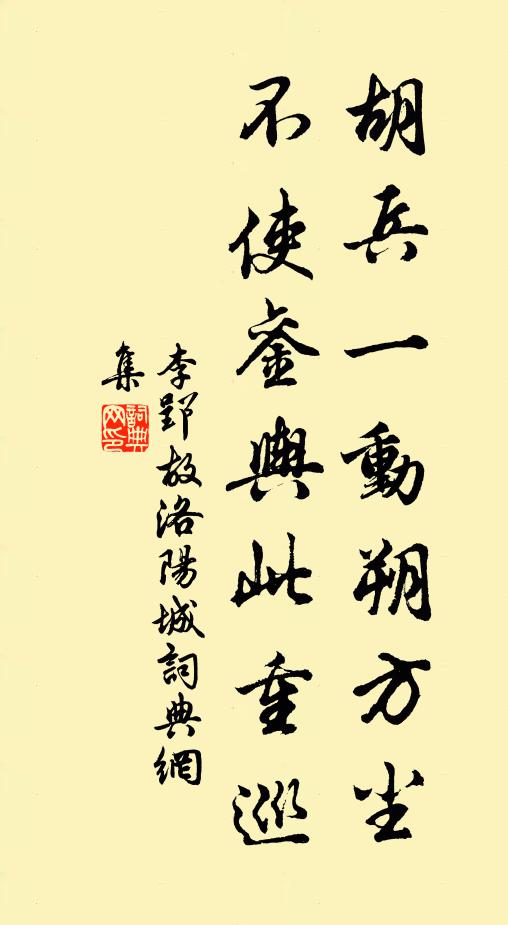 胡兵一動朔方尘
不使銮輿此重巡
李郢故洛陽城詞典網
集
詞典
网印